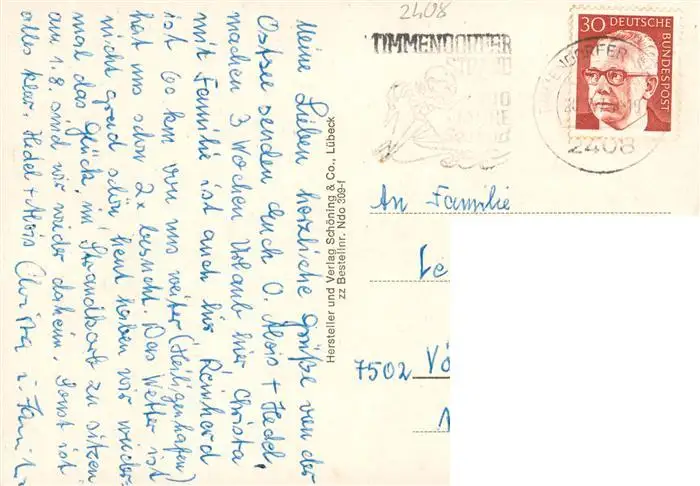 2408
TIMMENDORFER
STRAND
30 DEUTSCHE
BUNDESPOST
2408
Meine Lieben herzliche Grüße von der
Ostsee senden Euch O. Alois + Hedel,
machen 3 Wochen Urlaub hier Christa
mit Familie ist auch hier Reinhard
ist 60 km von uns weiter (Heiligenhafen)
hat uns schon 2x besucht. Das Wetter ist
nicht grad schön heut haben wir wieder
mal das Glück im Strandkorb zu sitzen
am 1.8. sind wir wieder daheim. Sonst ist
alles klar. Hedel + Alois Christa u. Familie
Hersteller und Verlag Schöning & Co., Lübeck
zz Bestellnr. Ndo 309-f
An Familie
Le
7502 Vö